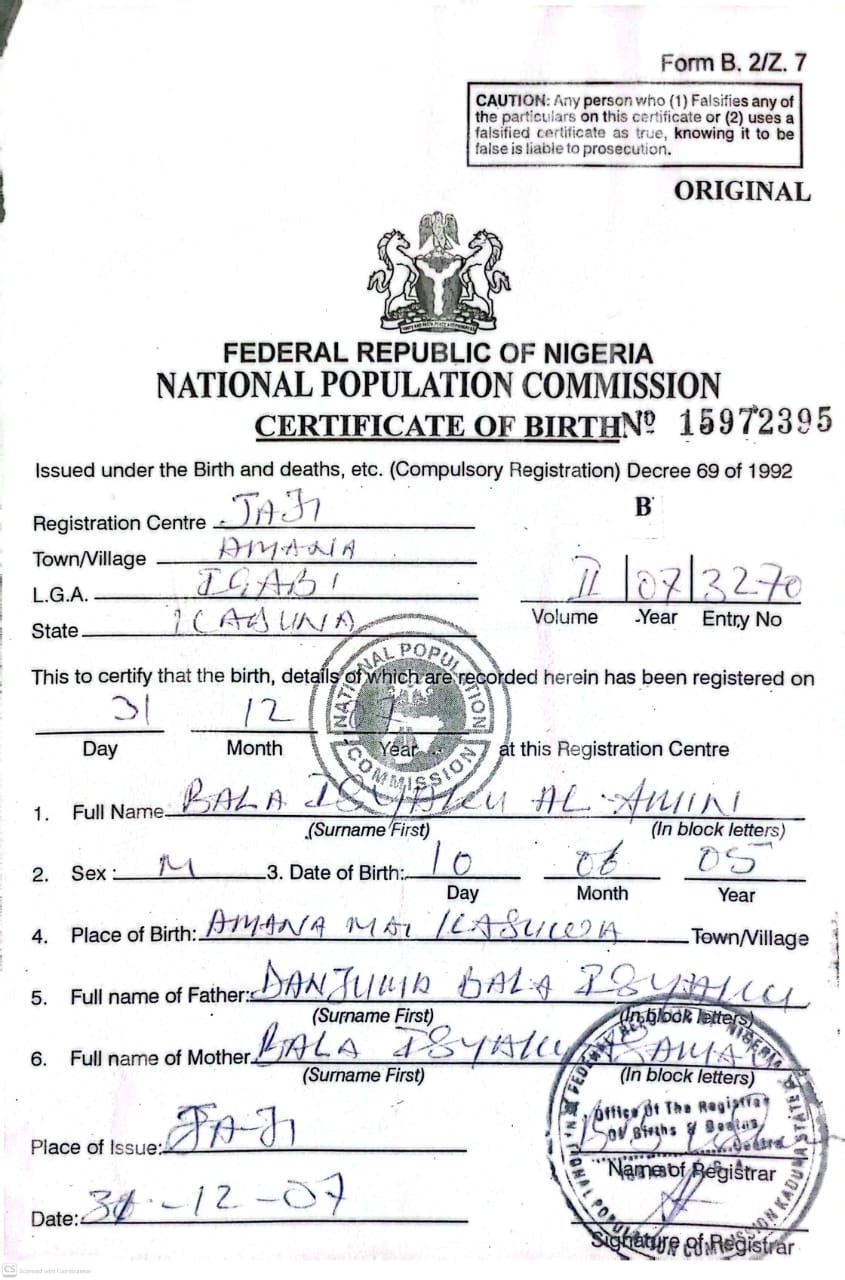 Form B. 2/Z. 7
CAUTION: Any person who (1) Falsifies any of
the particulars on this certificate or (2) uses a
falsified certificate as true, knowing it to be
false is liable to prosecution.
ORIGINAL
FEDERAL REPUBLIC OF NIGERIA
NATIONAL POPULATION COMMISSION
CERTIFICATE OF BIRTH Nº 15972395
Issued under the Birth and deaths, etc. (Compulsory Registration) Decree 69 of 1992
B
Registration Centre JAJI
Town/Village AMANA
L.G.A. IGABI
State KADUNA
II 07 3270
Volume Year Entry No
This to certify that the birth, details of which are recorded herein has been registered on
31 12 07
Day Month Year at this Registration Centre
NATIONAL POPULATION COMMISSION
1. Full Name BALA ISYAKU AL-AMINI
(Surname First) (In block letters)
2. Sex: M 3. Date of Birth: 10 06 05
Day Month Year
4. Place of Birth: AMANA MAI KASUWA Town/Village
5. Full name of Father: DANJUMA BALA ISYAKU
(Surname First) (In block letters)
6. Full name of Mother BALA ISYAKU
(Surname First) (In block letters)
Place of Issue: JAJI
Office Of The Registrar
Of Births & Deaths
Name of Registrar
Date: 31-12-07
Signature of Registrar
CS Scanned with CamScanner